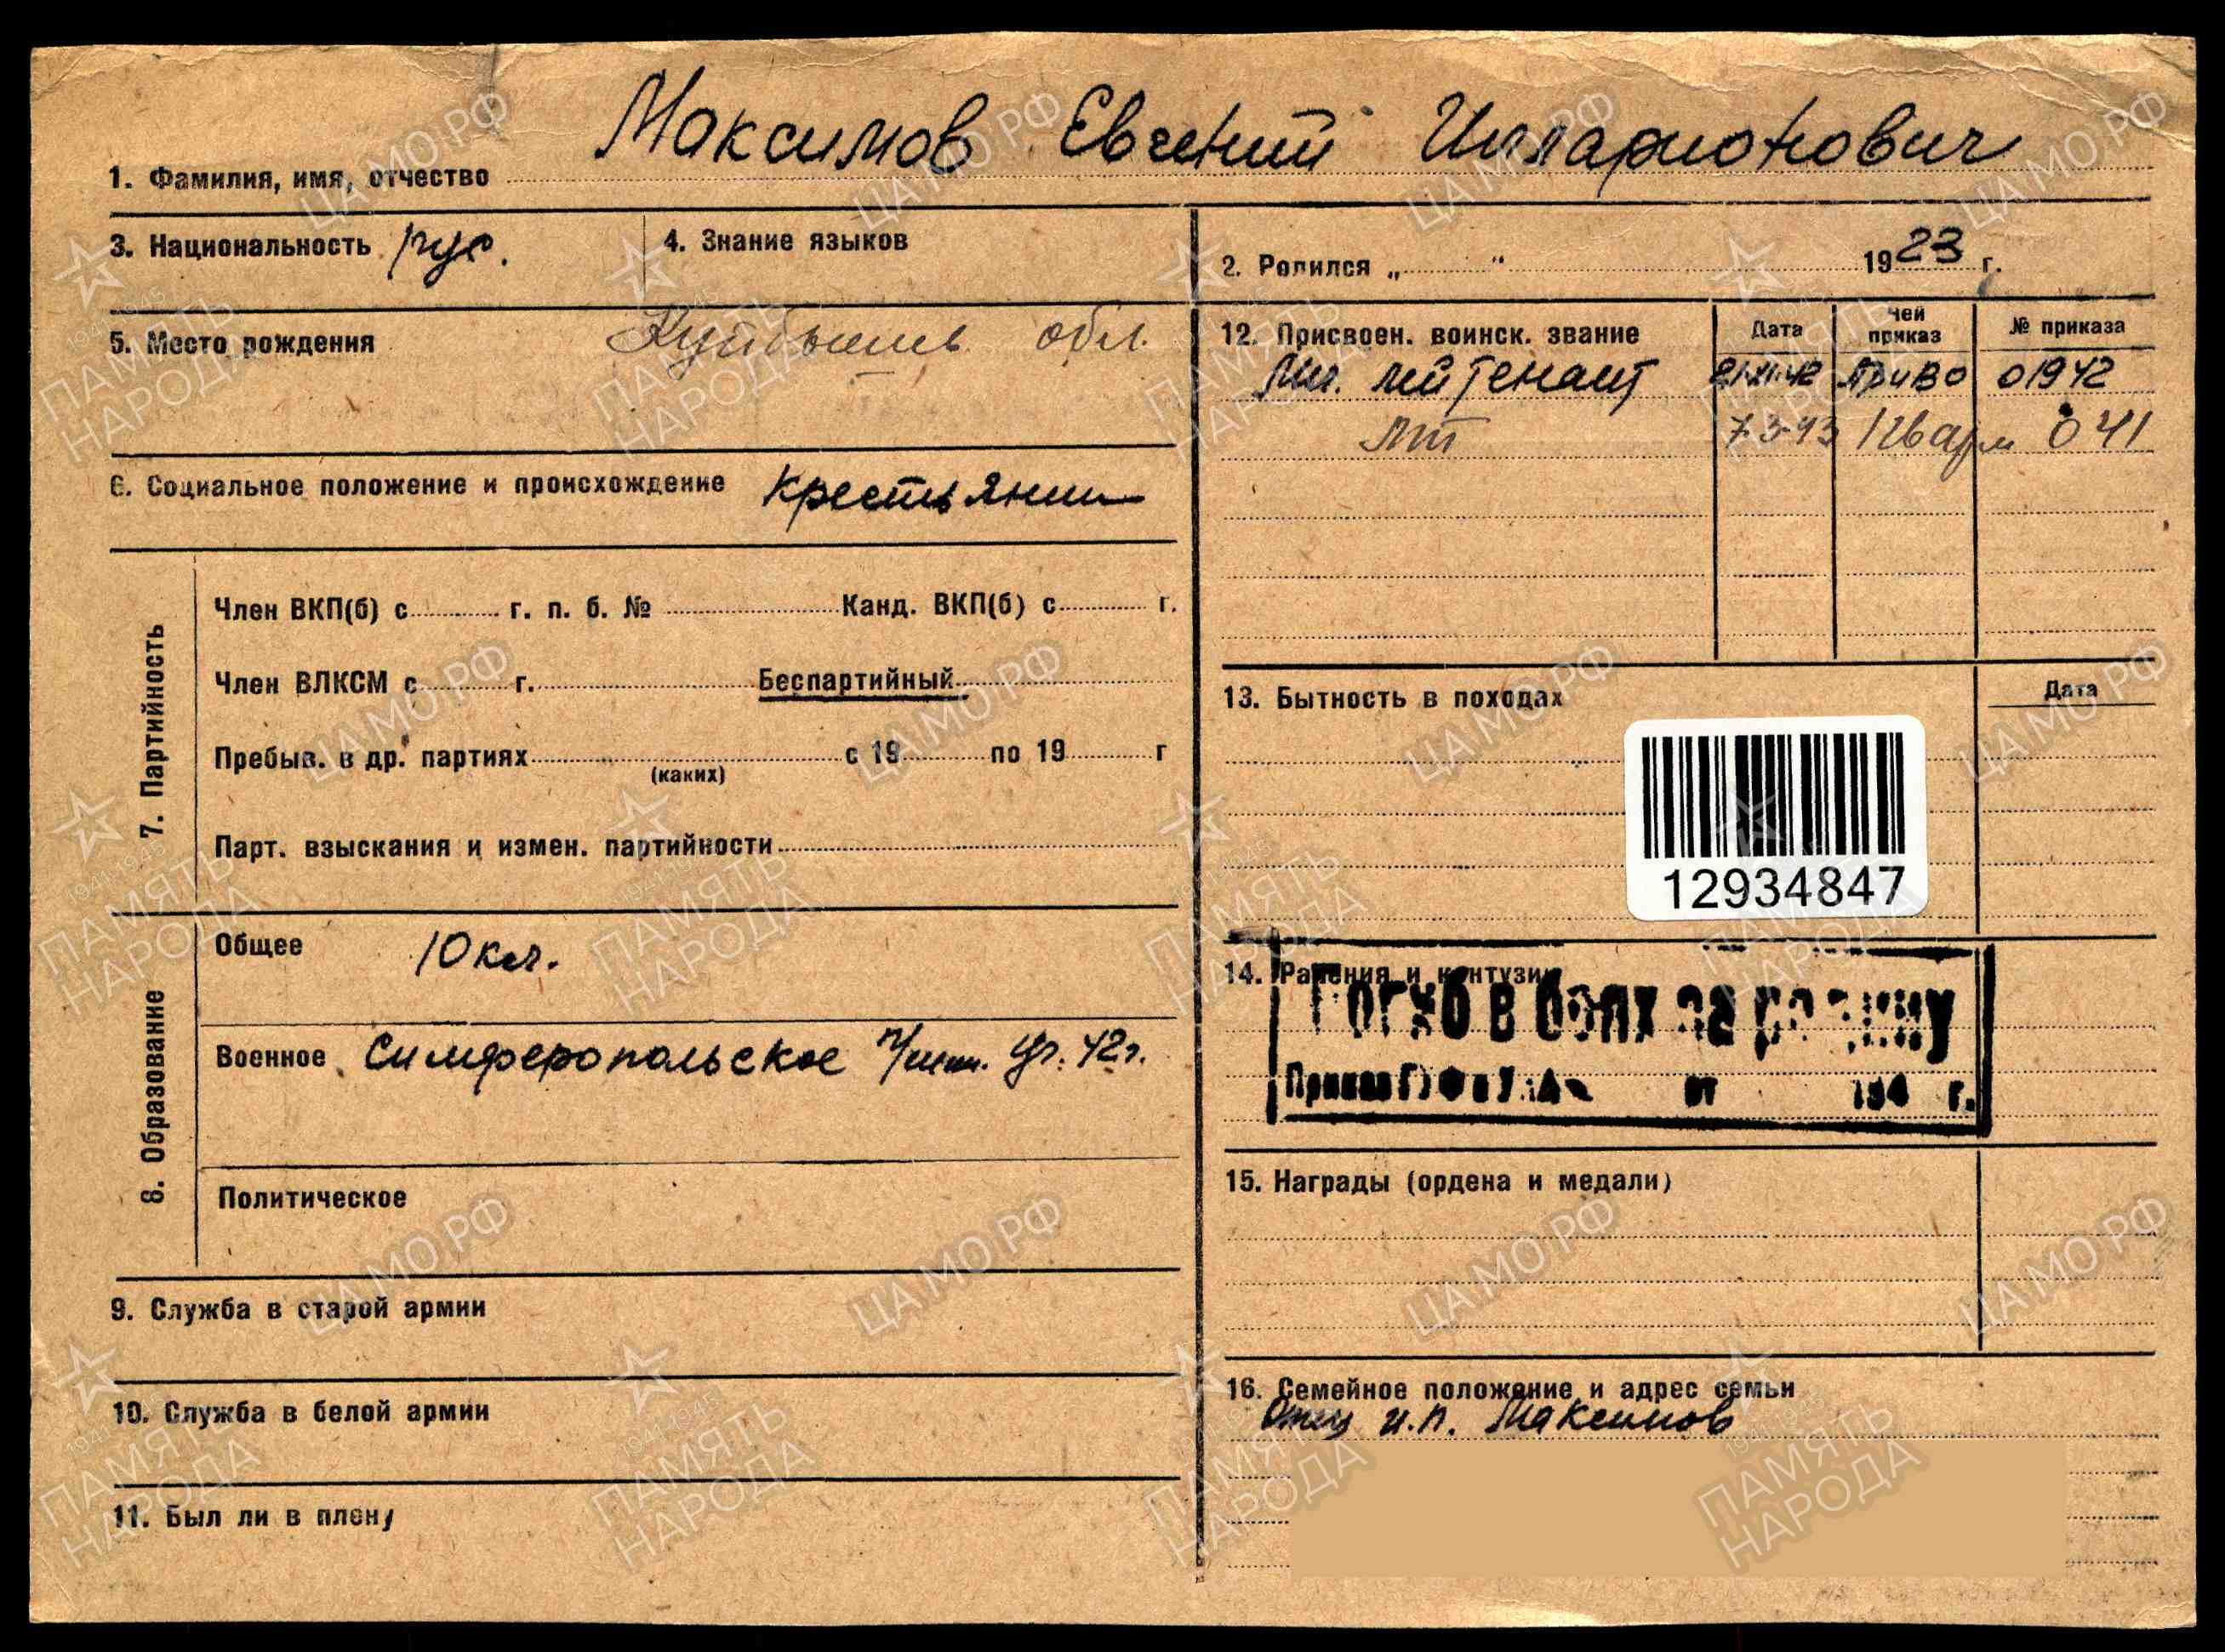 Максимов Евгений Илларионович
1. Фамилия, имя, отчество
3. Национальность рус.
4. Знание языков
2. Родился „ “ 1923 г.
5. Место рождения Куйбышев обл.
6. Социальное положение и происхождение Крестьянин
7. Партийность
Член ВКП(б) с г. п. б. № Канд. ВКП(б) с г.
Член ВЛКСМ с г. Беспартийный
Пребыв. в др. партиях с 19 по 19 г
(каких)
Парт. взыскания и измен. партийности
8. Образование
Общее 10 кл.
Военное Симферопольское уч. 42 г.
Политическое
9. Служба в старой армии
10. Служба в белой армии
11. Был ли в плену
12. Присвоен. воинск. звание Дата Чей приказ № приказа
Мл. лейтенант ПриВО 01942
лт 7-3-43 1 гв арм 041
13. Бытность в походах Дата
12934847
14. Ранения и контузии
Погиб в боях за родину
Приказ от 194 г.
15. Награды (ордена и медали)
16. Семейное положение и адрес семьи
Отец И.П. Максимов
ЦАМО.РФ
ПАМЯТЬ НАРОДА
1941-1945